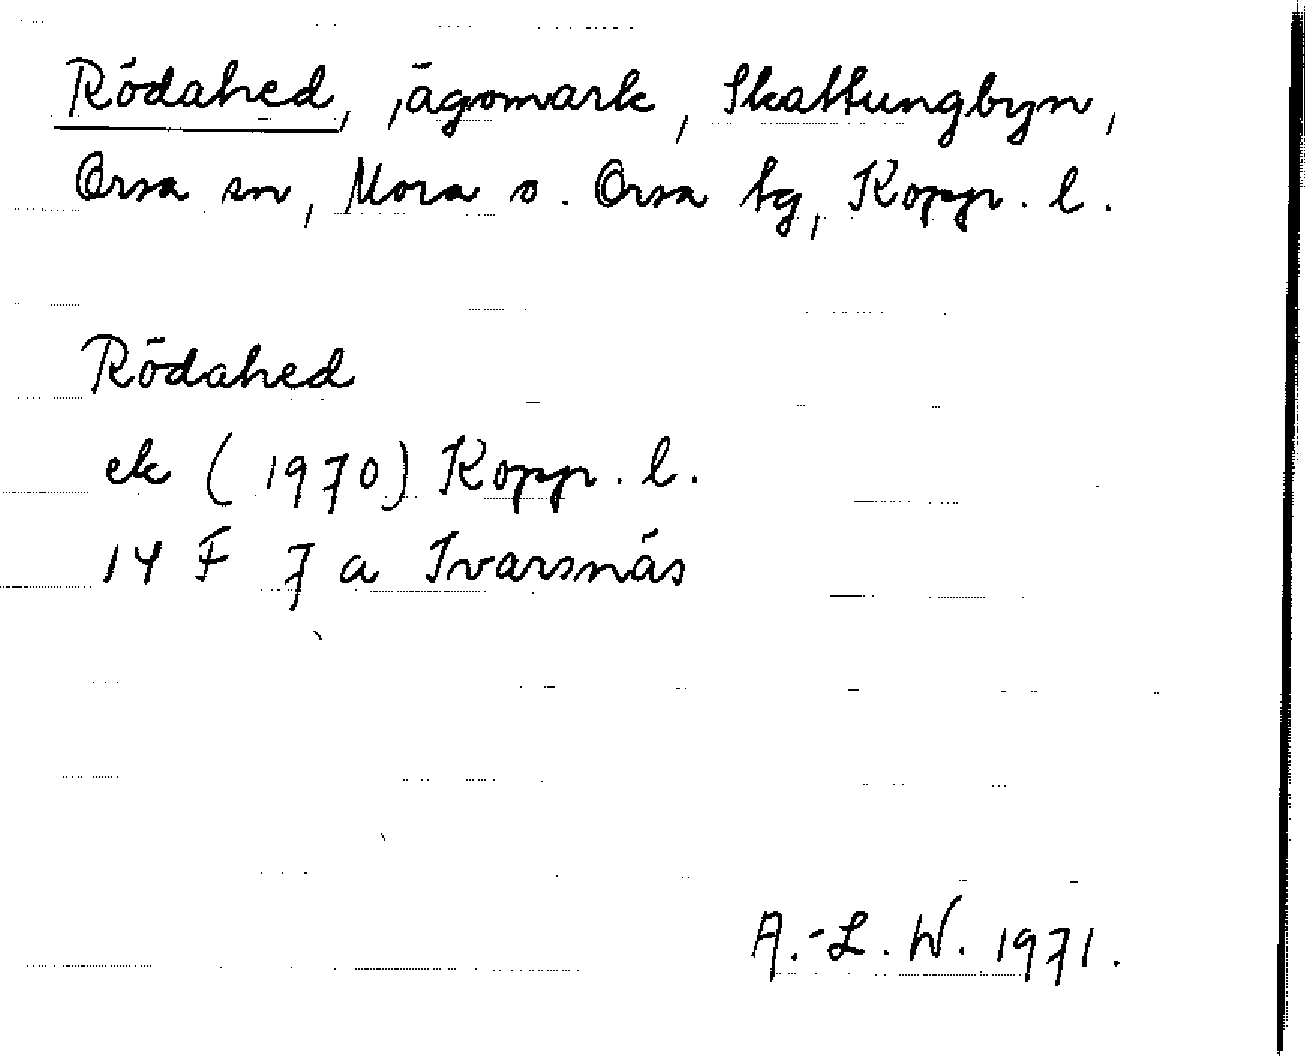 Rödahed, ägomark, Skattungbyn,
Orsa sn, Mora o. Orsa tg, Kopp. l.
Rödahed
ek (1970) Kopp. l.
14 F 7 a Ivarsnäs
A.-L. W. 1971.